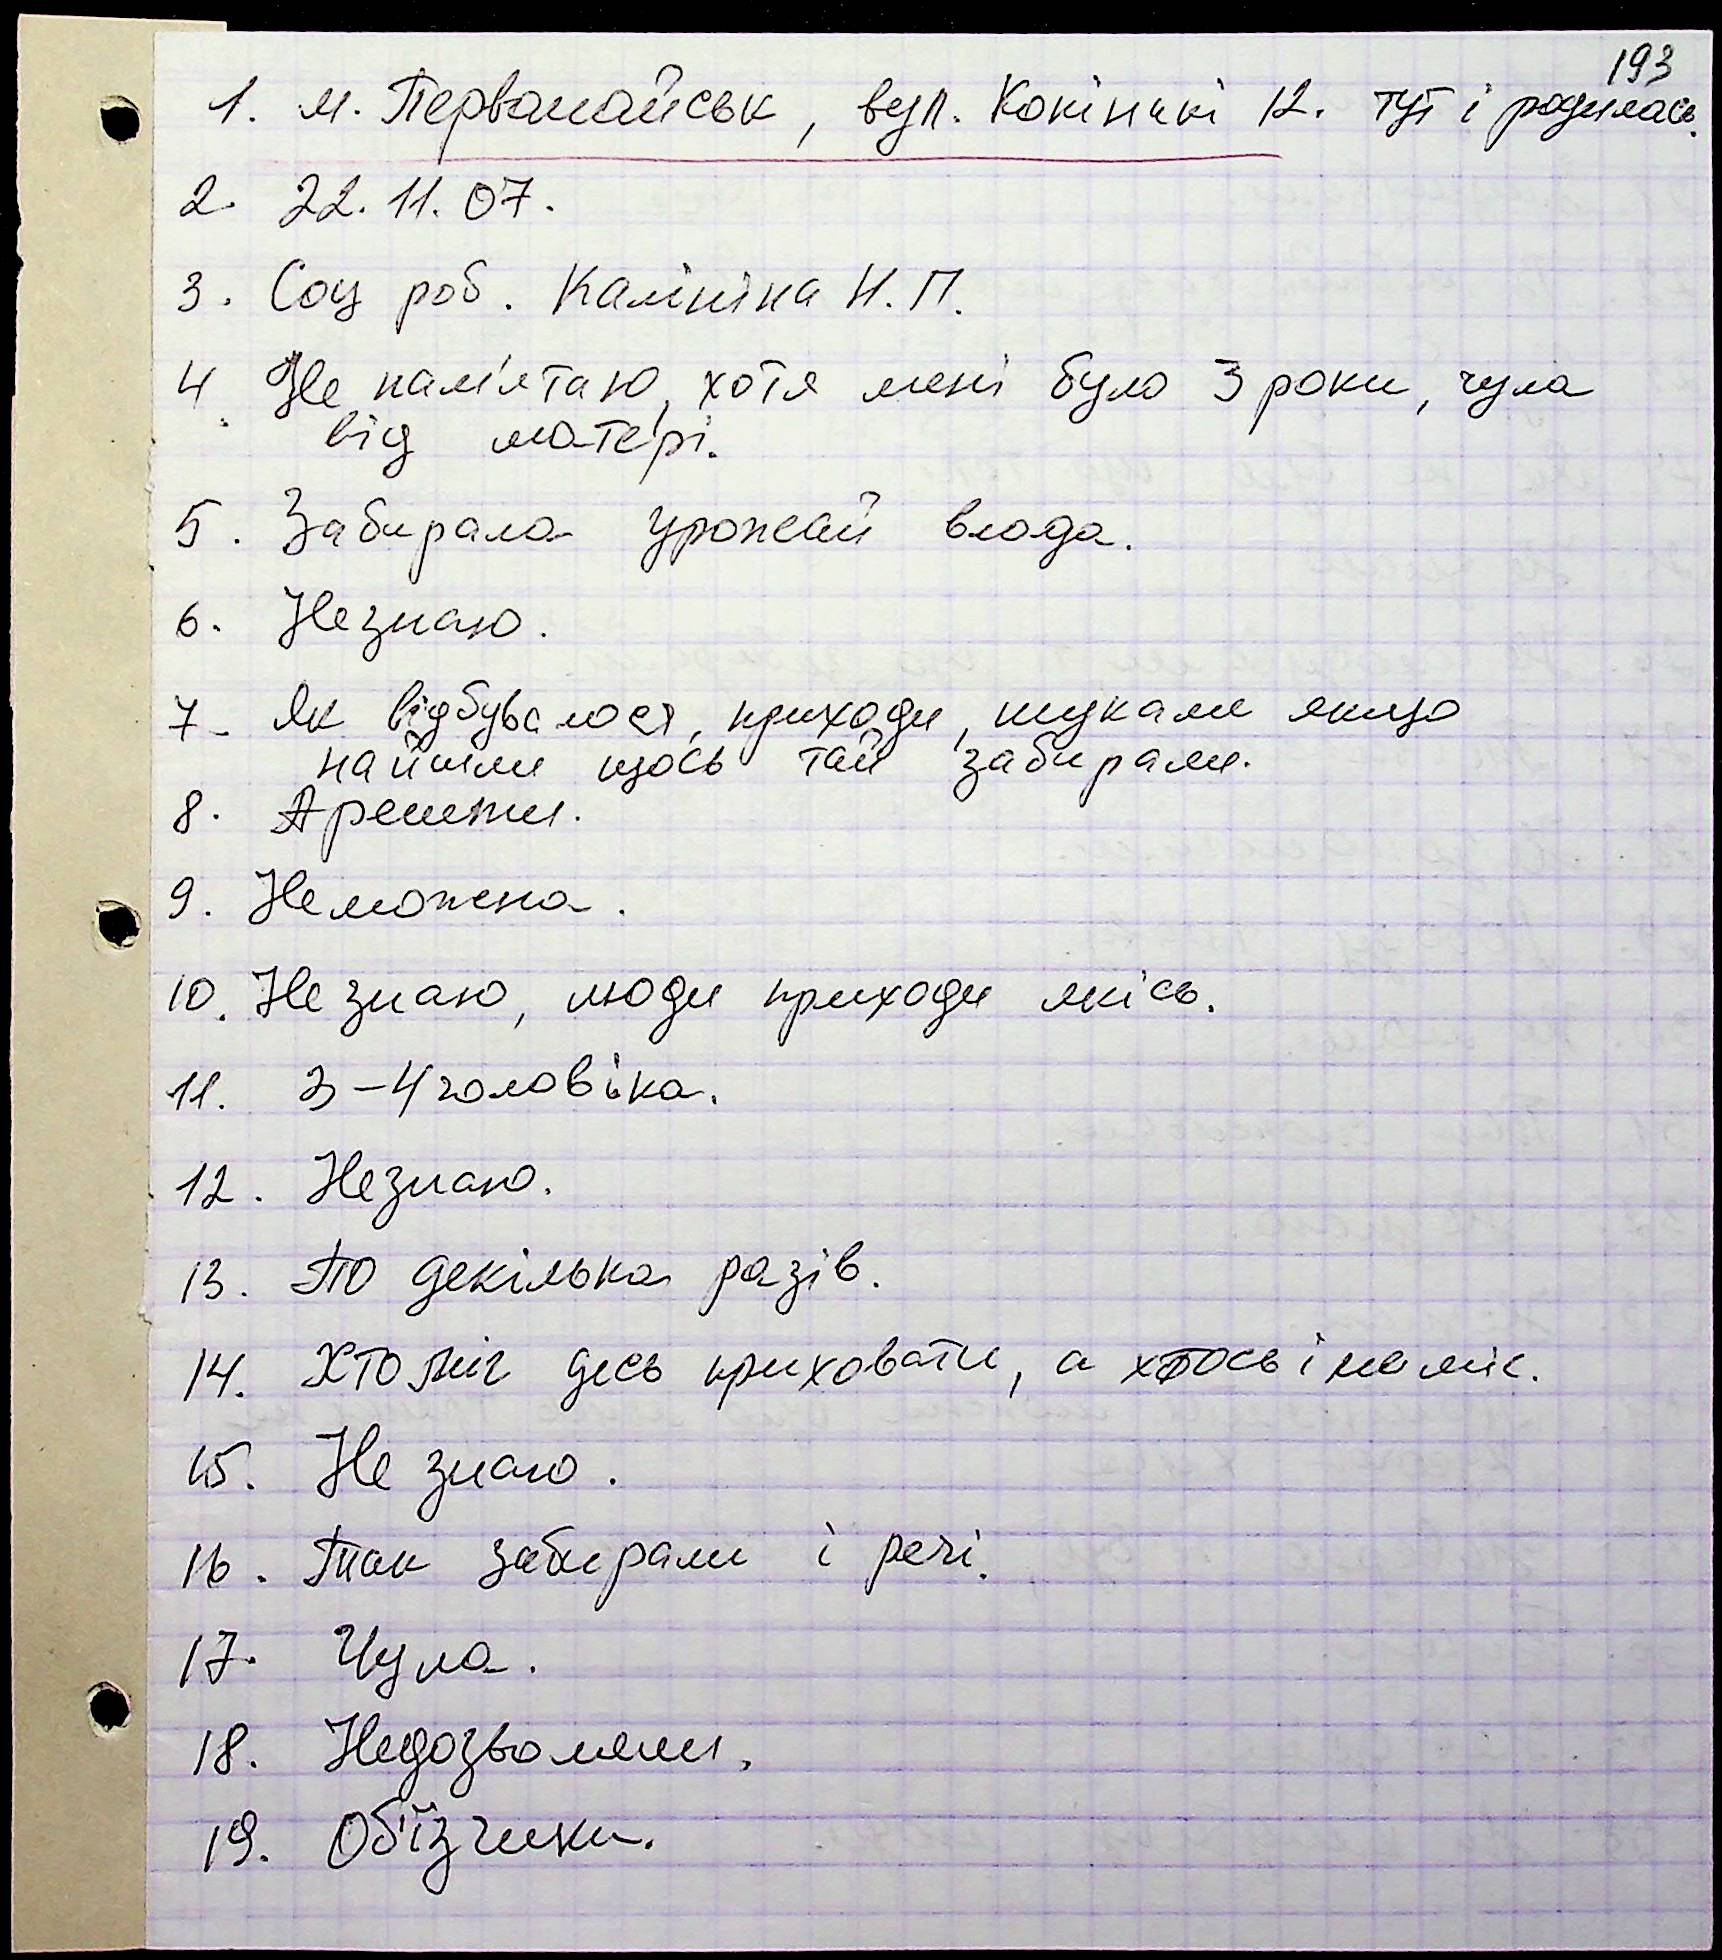 193
1. м. Первомайськ, вул. Кокінакі 12. тут і родилась.
2. 22.11.07.
3. Соц роб. Калініна Н.П.
4. Не пам'ятаю, хотя мені було 3 роки, чула
від матері.
5. Забирала урожай влада.
6. Незнаю.
7. Як відбувалося, приходи, шукали якщо
найшли щось тай забирали.
8. Арешти.
9. Неможна.
10. Незнаю, люди приходи якісь.
11. 3-4 чоловіка.
12. Незнаю.
13. По декілька разів.
14. Хто міг десь приховати, а хтось і не міг.
15. Не знаю.
16. Так забирали і речі.
17. Чула.
18. Недозволяли.
19. Об'їзчики.